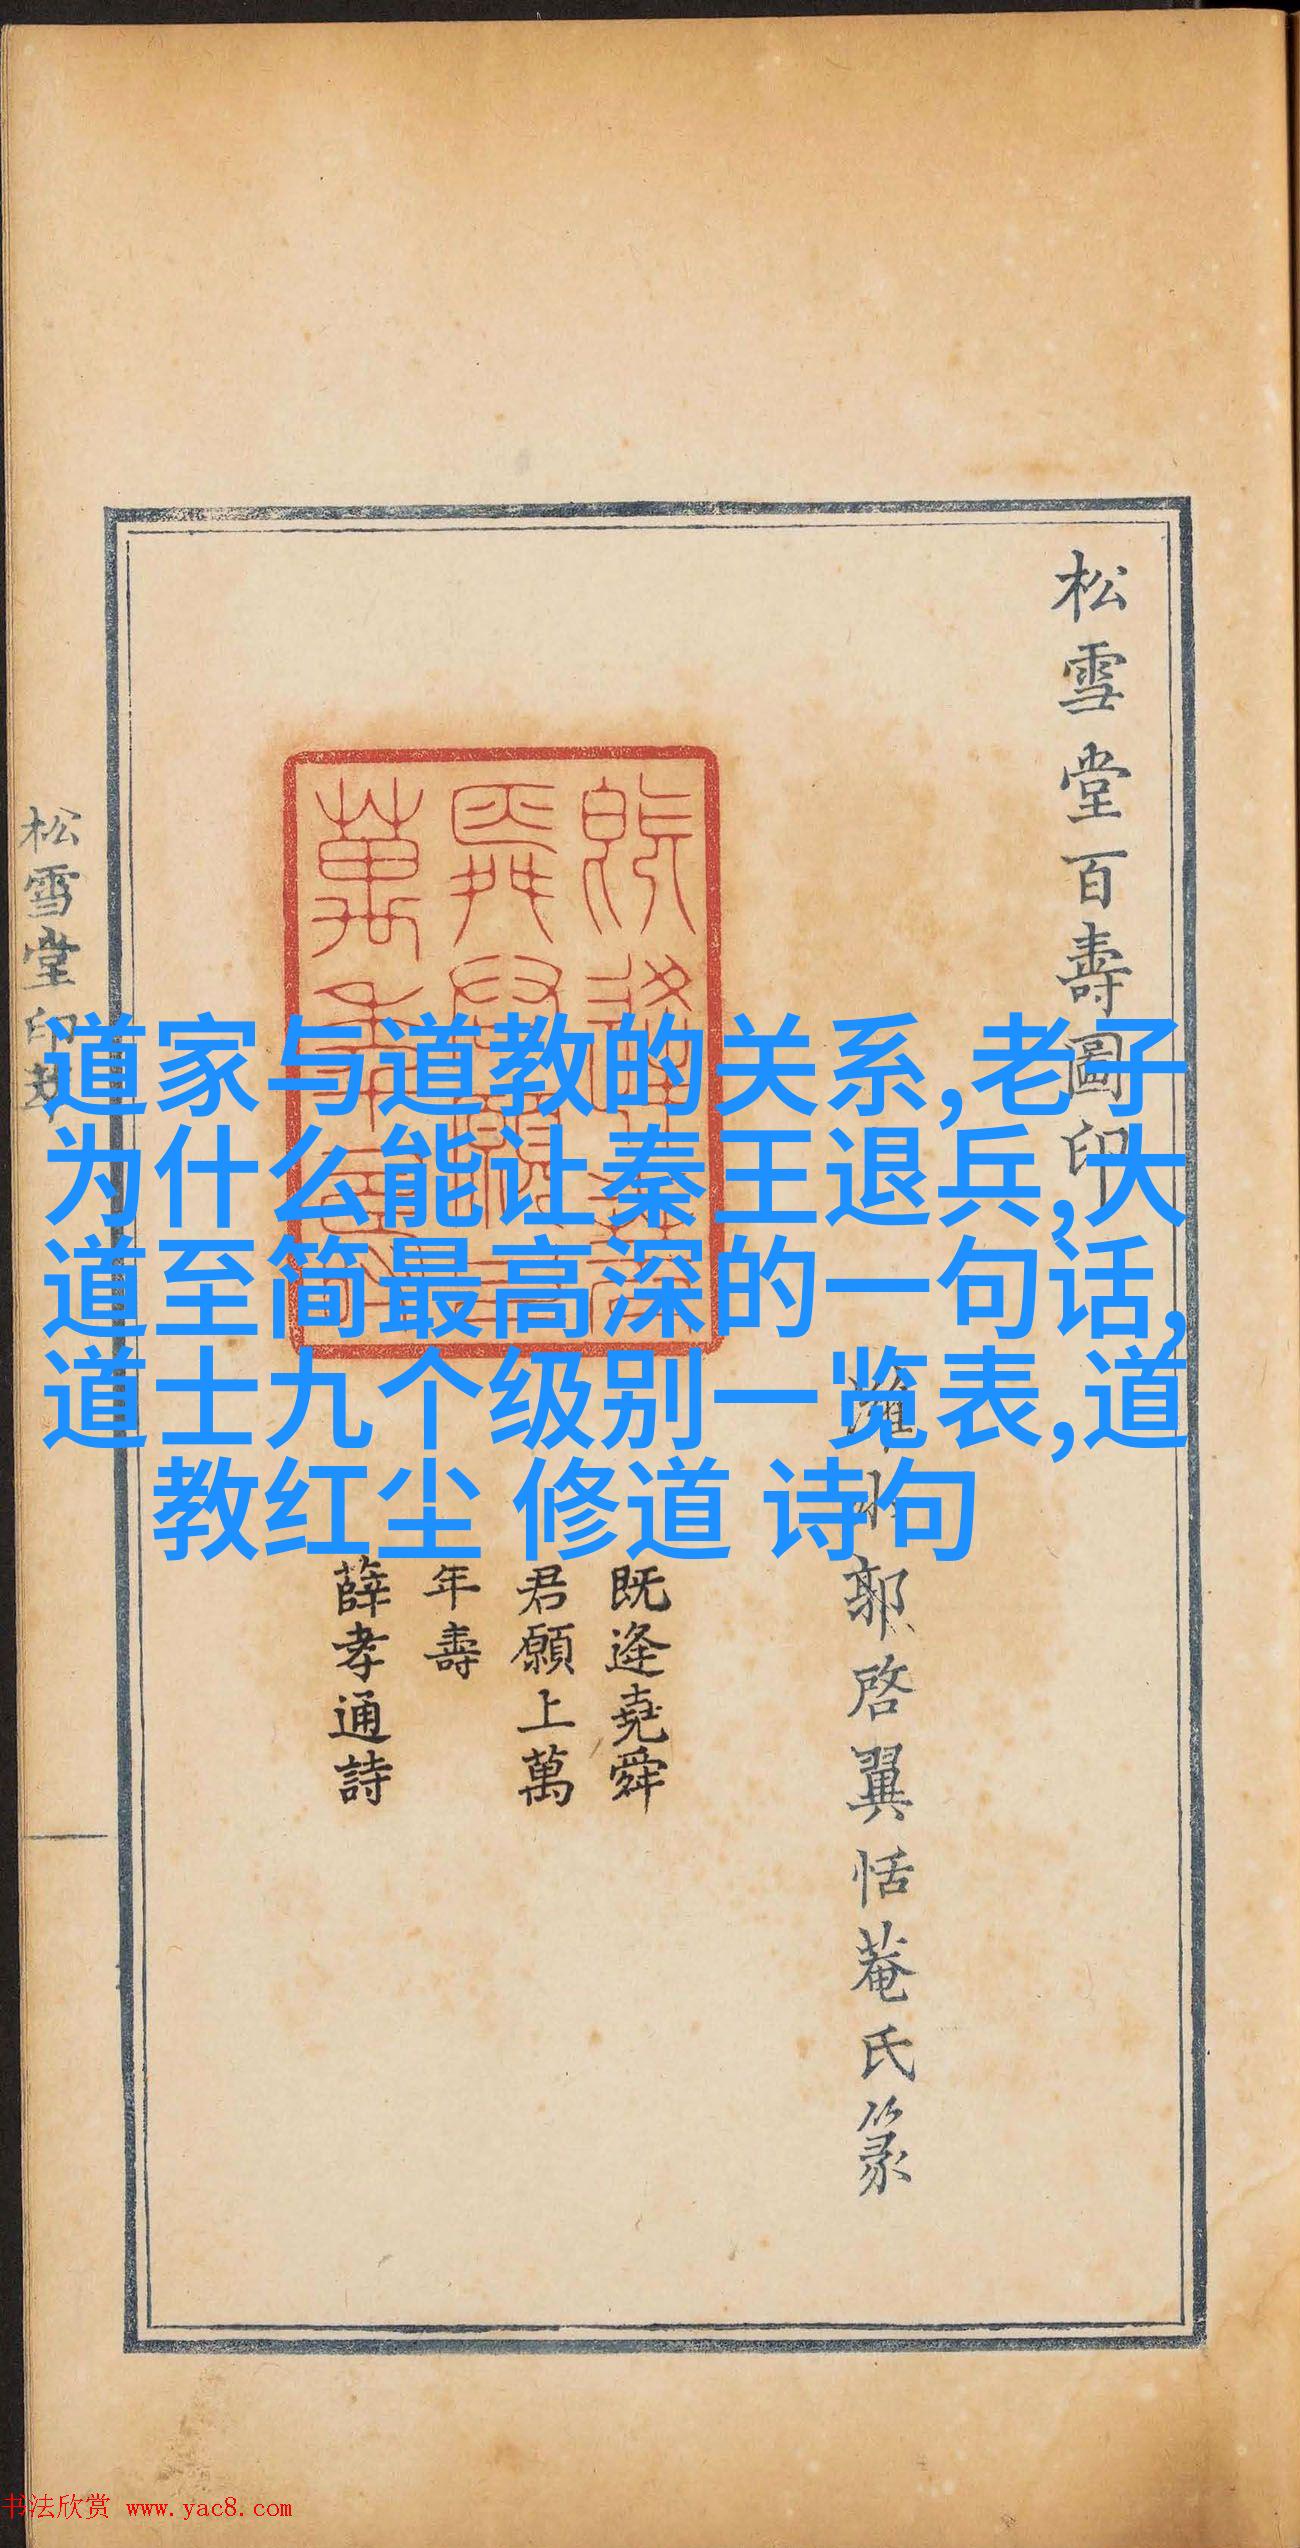 松雪堂百壽圖印
濰水郭啓翼恬菴氏篆
既逢堯舜
君願上萬
年壽
薛孝通詩
松雪堂印
道家与道教的关系,老子
为什么能让秦王退兵,大
道至简最高深的一句话,
道士九个级别一览表,道
教红尘 修道 诗句
书法欣赏 www.yac8.com